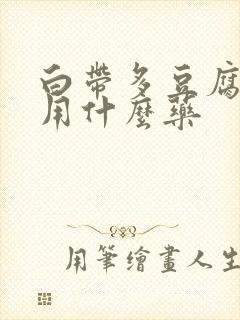 白帶多豆腐
用什麼藥
用筆繪畫人生